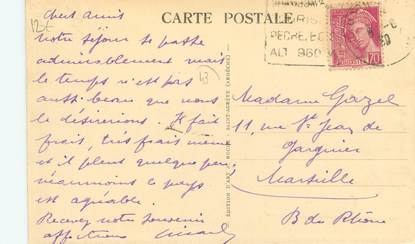 12€
CARTE POSTALE
Chers Amis
notre séjour se passe
admirablement mais
le temps n'est pas
aussi beau que nous
le désirerions. Il fait
frais, très frais même
et il pleut quelque peu
néanmoins le pays
est agréable.
Recevez notre souvenir
affectueux
ALT 960
70
Madame Gazel
11, rue St Jean de
Garguier
Marseille
B du Rhône